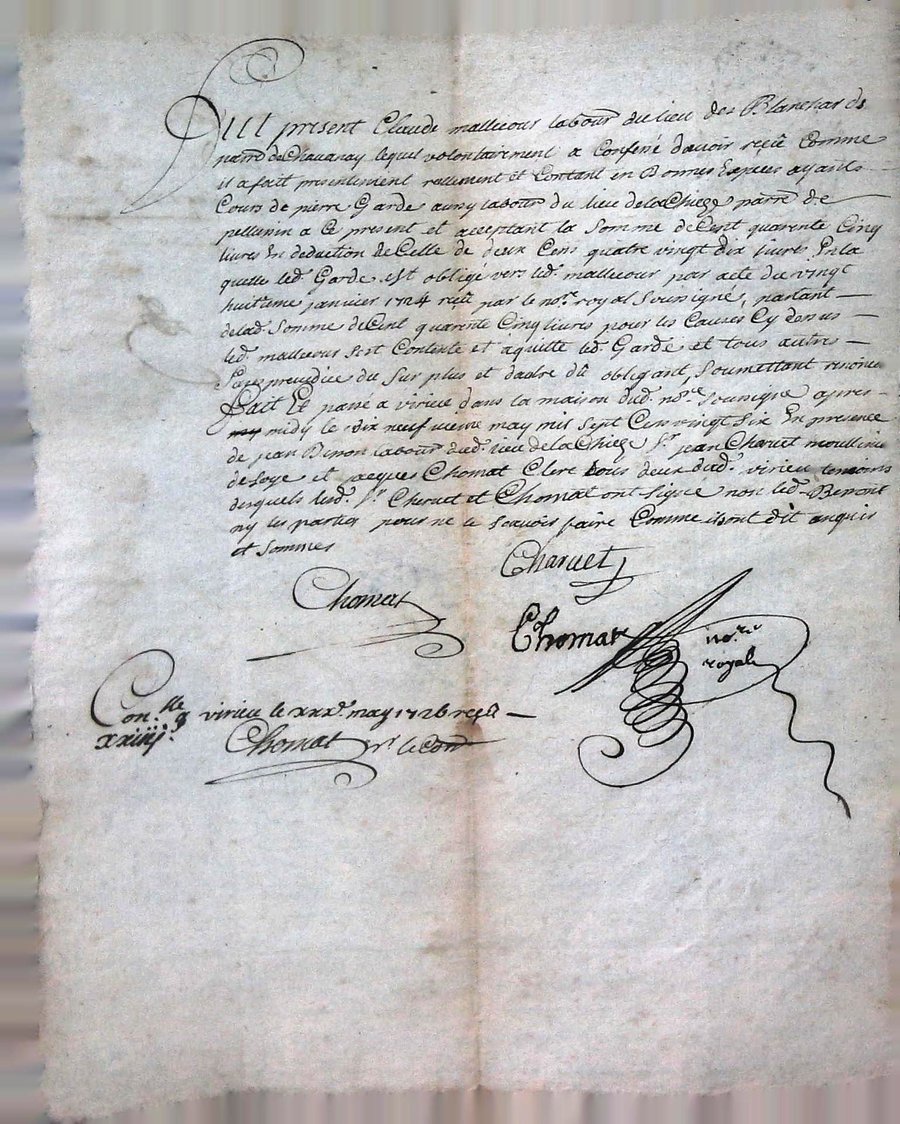 Fut present Claude mallecour labour. du lieu des Blanchards
parre. de Chavanay lequel volontairement a confessé davoir reçû comme
il a fait presentement reellement et Contant en Bonnes Especes ayants
Cours de pierre Garde aussy labour. du lieu de la Chieze parre. de
pellussin a ce present et acceptant la somme de Cent quarente Cinq
livres En deduction de Celle de deux Cens quatre vingt dix livres En la
quelle led. Garde est obligé vers led. mallecour par acte du vingt
huitieme janvier 1724 reçû par le nore. royal soussigné, partant
de lad. Somme de Cent quarente Cinq livres pour les Causes Cy dessus
led. mallecour sest Contenté et aquitte led. Garde et tous autres
sans prejudice du surplus et dudre dû obligant, soumettant
fait Et passé a virieu dans la maison dud. nore. soussigné apres
midy le dix neufvieme may mil sept Cens vingt six En presence
de jean Benon labour. dud. lieu de la Chieze Sr. jean Charvet moullinier
de soye et jacques Chomat Clerc tous deux dud. virieu temoins
desquels lesd. Sr. Charvet et Chomat ont signé non led. Benon
ny les parties pour ne le scavoir faire Comme ils ont dit enquis
et sommés
Charvet
Chomat
Chomat nore. royal
Conlle. a virieu le xxxe. may 1726 reçu
xxiiijs.
Chomat pr. le Cont.